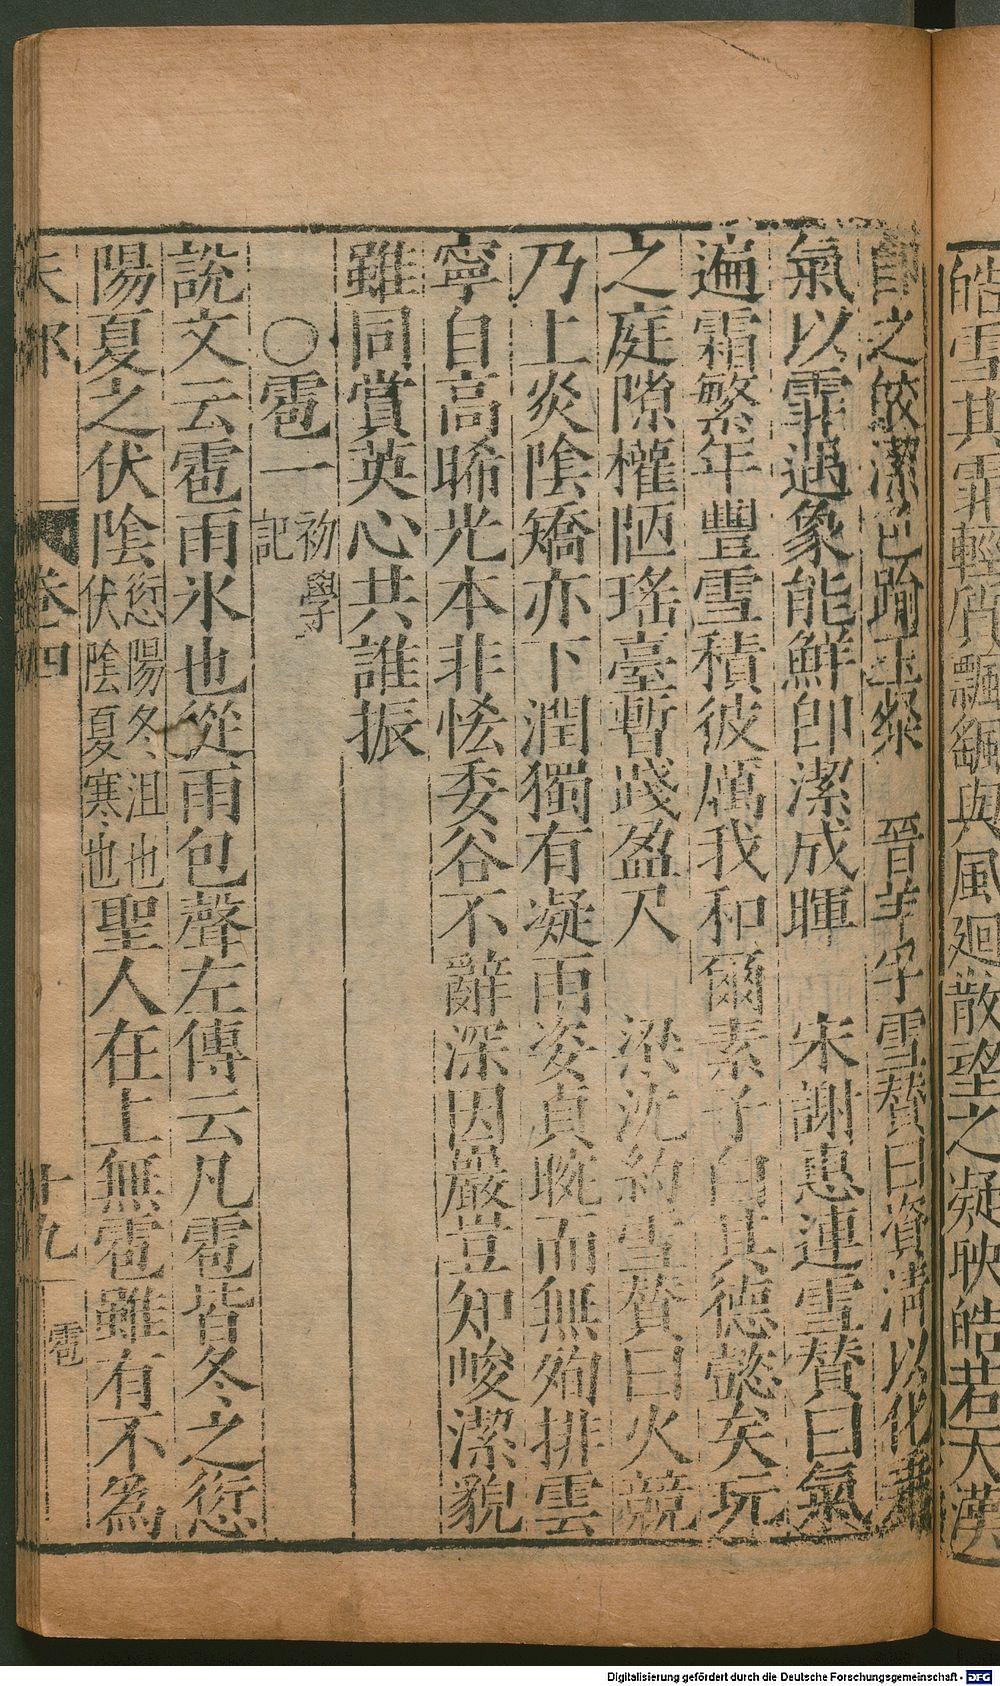 皓雪其霏輕質飄颻與風迴散望之凝映皓若天漢
即之皎潔色踰玉粲　晉羊孚雪贊曰資清以化乘
氣以霏遇象能鮮即潔成暉　宋謝惠連雪贊曰氣
遍霜繁年豐雪積彼厲我和爾素子白其德懿矣玩
之庭隙權陋瑤臺暫踐盈尺　梁沈約雪贊曰火競
乃上炎陰矯亦下潤獨有凝雨姿貞晼而無殉排雲
寧自高晞光本非恡委谷不辭深因嚴豈知峻潔貌
雖同賞英心共誰振
○雹一 初學記
說文云雹雨氷也從雨包聲左傳云凡雹皆冬之愆
陽夏之伏陰 愆陽冬温也伏陰夏寒也 聖人在上無雹雖有不為
天部 卷四 十九 雹
Digitalisierung gefördert durch die Deutsche Forschungsgemeinschaft - DFG